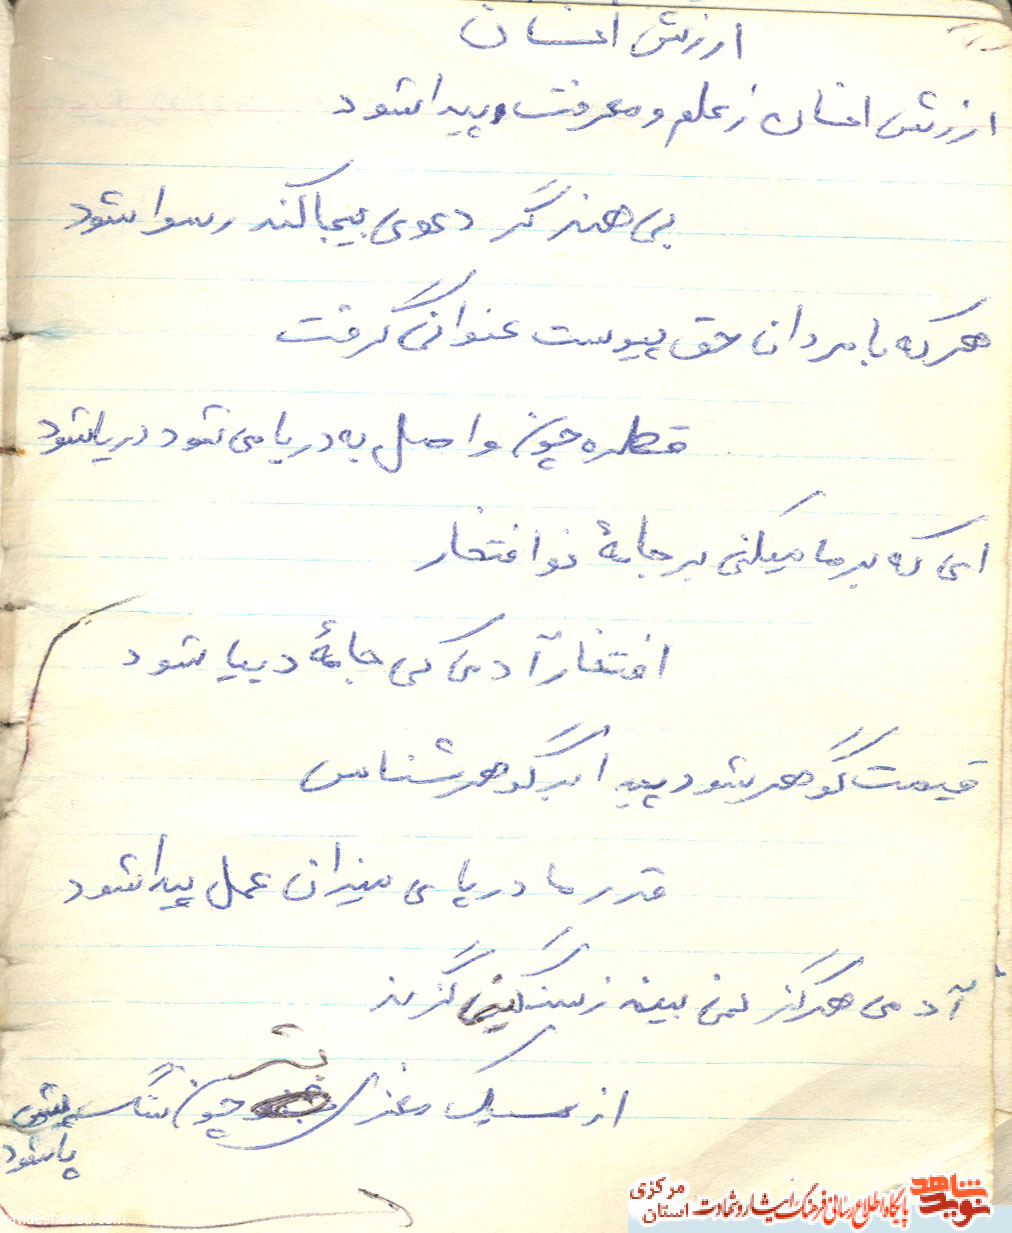 ارزش انسان
ارزش انسان ز علم و معرفت پیدا شود
بی هنر گر دعوی بیجا کند رسوا شود
هر که با مردان حق پیوست عنوانی گرفت
قطره چون واصل به دریا می شود دریا شود
ای که بر ما میکنی بر جامهٔ نو افتخار
افتخار آدمی کی جامهٔ دیبا شود
قیمت گوهر شود پیدا بر گوهر شناس
قدر ما در پای میزان عمل پیدا شود
آدمی هرگز نمی بیند ز سنگینی گزند
از سبک مغزی بشر چون سنگ پیش
پا شود
نوید شاهد
پایگاه اطلاع رسانی فرهنگ ایثار و شهادت
استان مرکزی